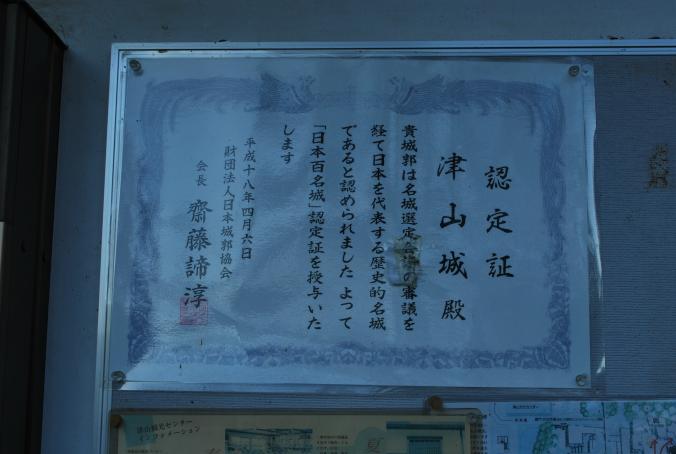 認定証
津山城殿
貴城郭は名城選定会議の審議を
経て日本を代表する歴史的名城
であると認められました よって
「日本百名城」認定証を授与いた
します
平成十八年四月六日
財団法人日本城郭協会
会長 齋藤諦淳
津山観光センター
インフォメーション
夏